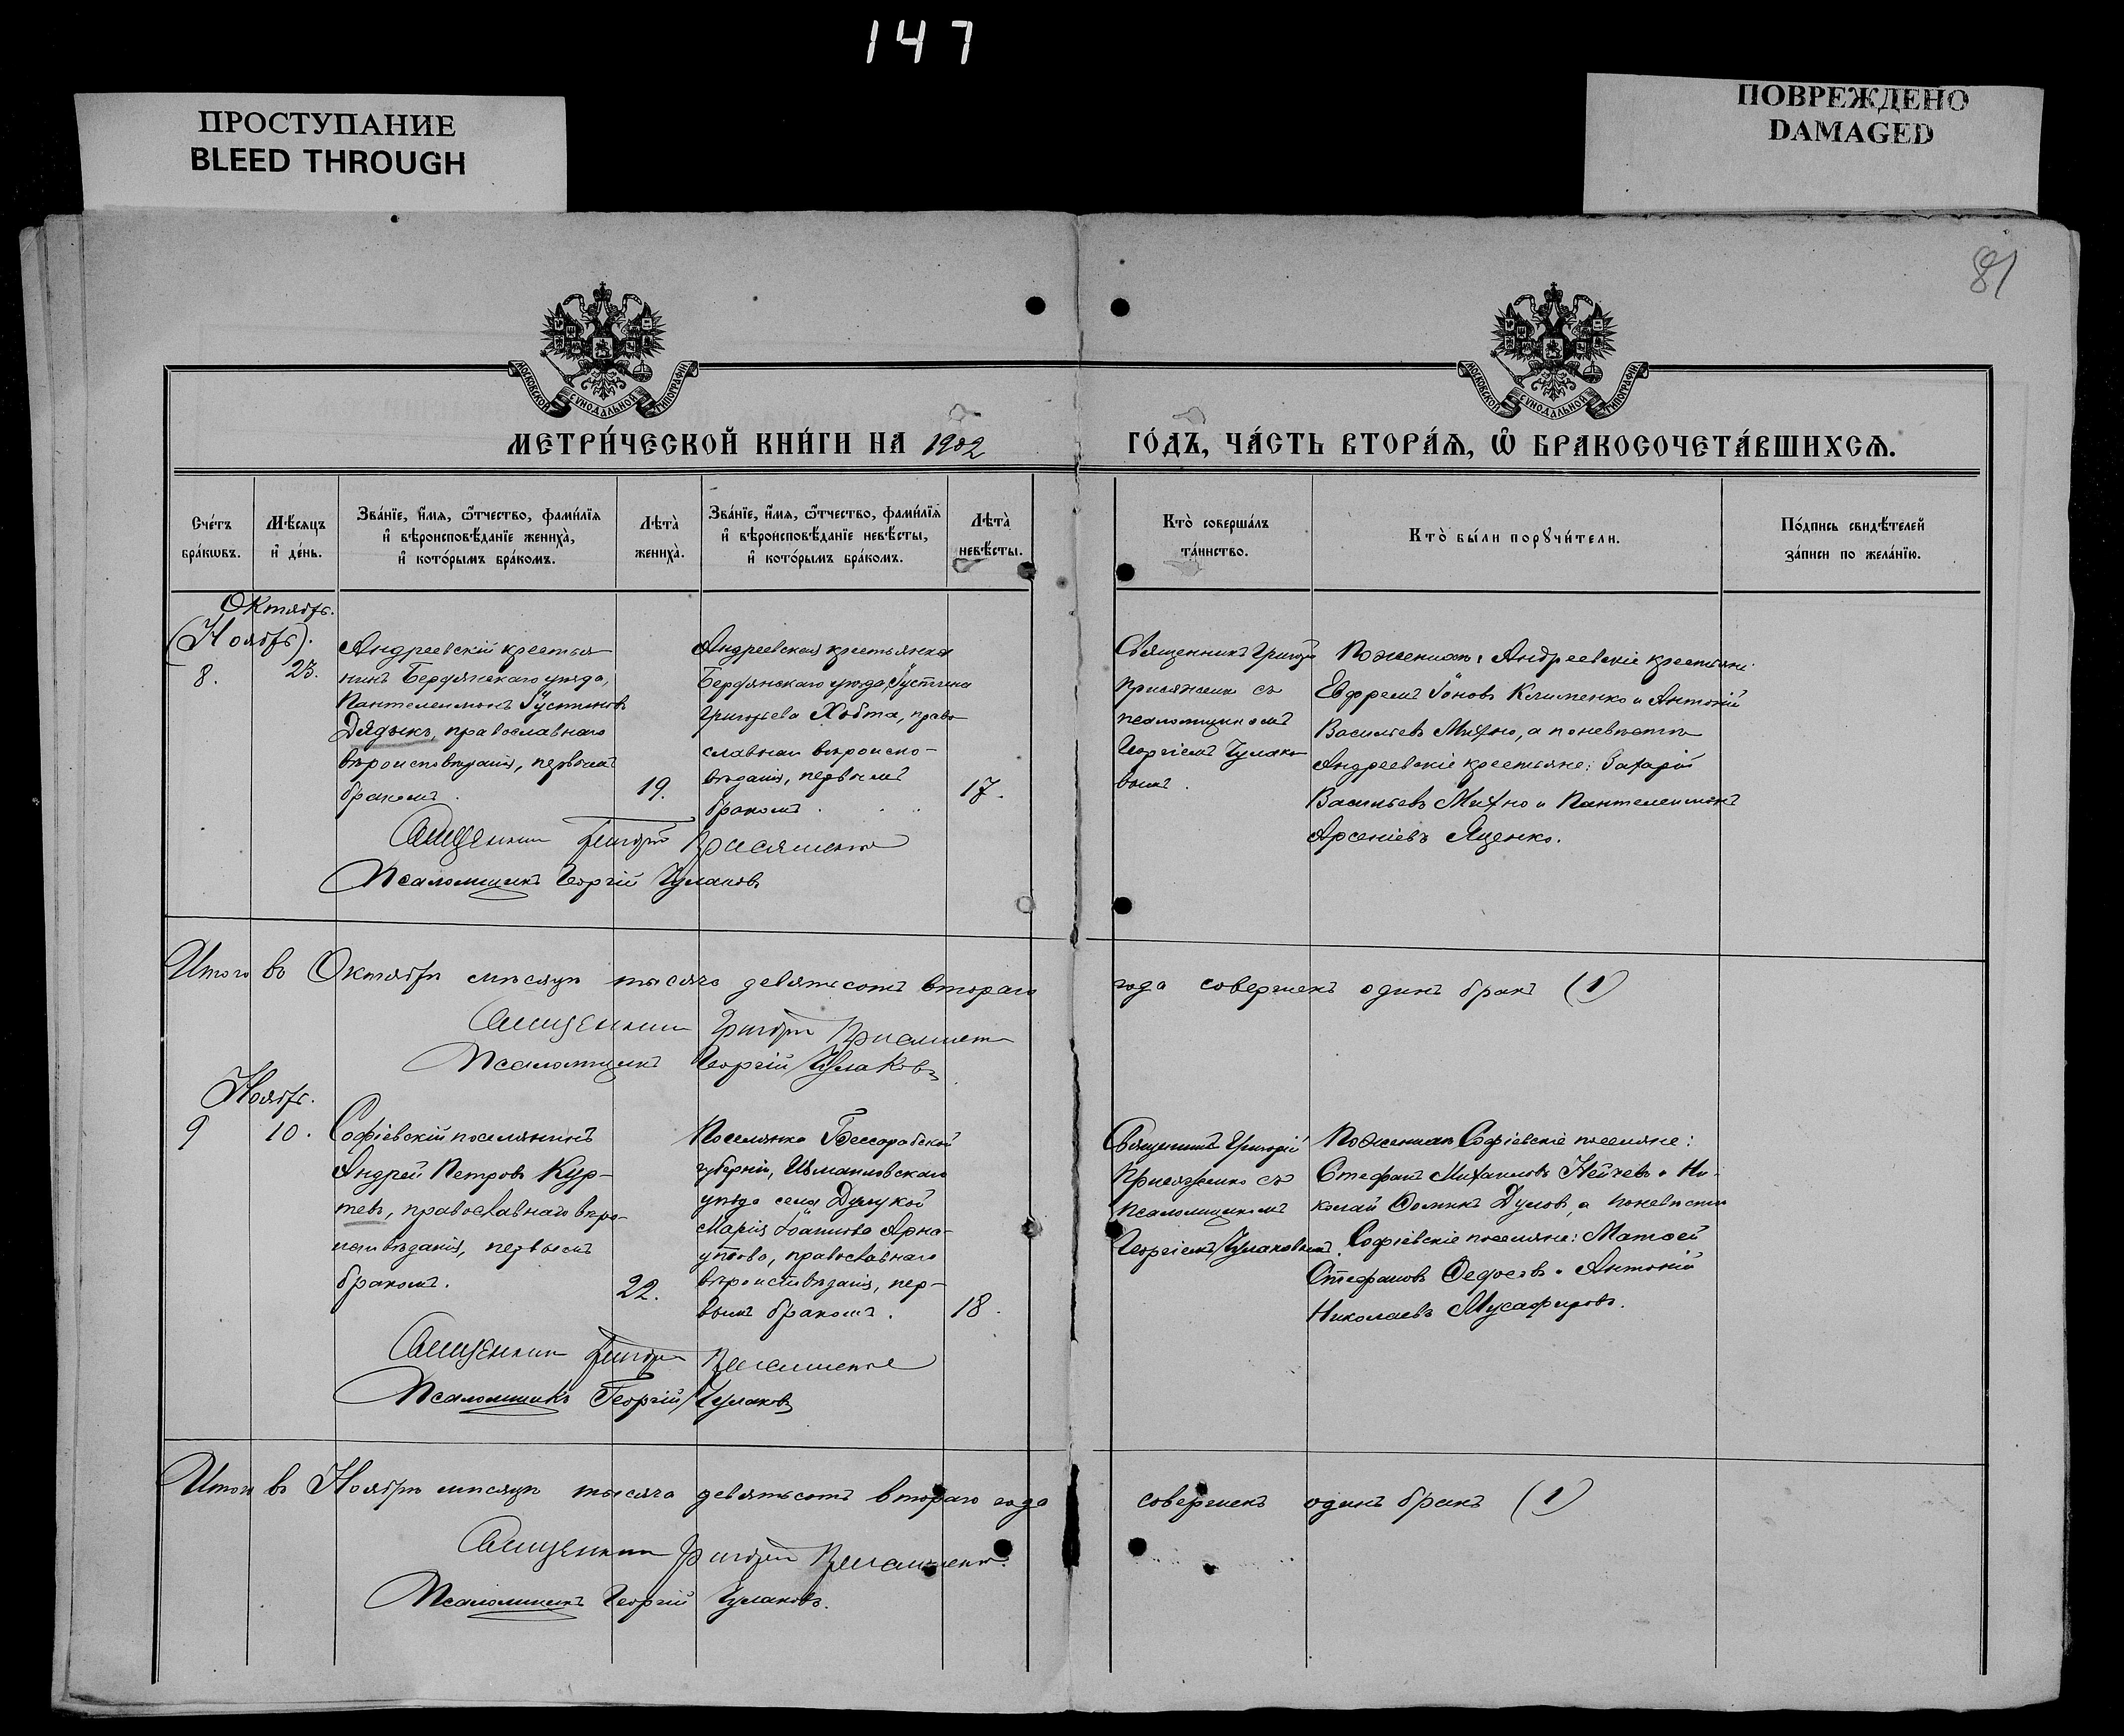 147
ПРОСТУПАНИЕ
BLEED THROUGH
ПОВРЕЖДЕНО
DAMAGED
81
МОСКОВСКОЙ СѴНОДАЛЬНОЙ ТИПОГРАФІИ
МОСКОВСКОЙ СѴНОДАЛЬНОЙ ТИПОГРАФІИ
МЕТРИ́ЧЕСКОЙ КНИ́ГИ НА 1902
ГО́ДЪ, ЧА́СТЬ ВТОРА́Ѧ, Ѿ БРАКОСОЧЕТА́ВШИХСѦ.
Сче́тъ
бра́кѡвъ.
Мѣ́сѧцъ
и҆ де́нь.
Зва́нїе, и҆́мѧ, ѻ҆́тчество, фами́лїѧ
и҆ вѣроисповѣ́данїе жениха̀,
и҆ кото́рымъ бра́комъ.
Лѣта̀
жениха̀.
Зва́нїе, и҆́мѧ, ѻ҆́тчество, фами́лїѧ
и҆ вѣроисповѣ́данїе невѣ́сты,
и҆ кото́рымъ бра́комъ.
Лѣта̀
невѣ́сты.
Кто̀ соверша́лъ
та́инство.
Кто̀ бы́ли порꙋчи́тели.
По́дпись свидѣ́телей
за́писи по жела́нїю.
Октябрь.
(Ноябрь).
8.
23.
Андреевскій крестья
нинъ Бердянскаго уѣзда,
Пантелеимонъ Іустиновъ
Дядыкъ, православнаго
вѣроисповѣданія, первымъ
бракомъ.
19.
Андреевская крестьянка
Бердянскаго уѣзда, Іустина
Григорьева Хобта, право
славнаго вѣроиспо-
вѣданія, первымъ
бракомъ.
17.
Священникъ Григорій
Присяженко съ
псаломщикомъ
Георгіемъ Чулако
вымъ.
По женихѣ: Андреевскіе крестьяне:
Евфремъ Іоновъ Клименко и Антоній
Васильевъ Михно, а по невѣстѣ
Андреевскіе крестьяне: Захарій
Васильевъ Михно и Пантелеимонъ
Арсеніевъ Яценко.
Священникъ Григорій Присяженко
Псаломщикъ Георгій Чулаковъ
Итого въ Октябрѣ мѣсяцѣ тысяча девятьсотъ втораго
года совершенъ одинъ бракъ (1)
Священникъ Григорій Присяженко
Псаломщикъ Георгій Чулаковъ
Ноябрь.
9
10.
Софіевскій поселянинъ
Андрей Петровъ Кур-
тевъ, православнаго вѣро-
исповѣданія, первымъ
бракомъ.
22.
Поселянка Бессарабской
губерніи, Измаиловскаго
уѣзда села Дулукой
Марія Іоаннова Арна-
утова, православнаго
вѣроисповѣданія, пер-
вымъ бракомъ.
18.
Священникъ Григорій
Присяженко съ
псаломщикомъ
Георгіемъ Чулаковымъ.
По женихѣ Софіевскіе поселяне:
Стефанъ Михаиловъ Нейчевъ и Ни-
колай Ѳоминъ Дуловъ, а по невѣстѣ
Софіевскіе поселяне: Матѳей
Стефановъ Ѳедоровъ и Антоній
Николаевъ Мусафировъ.
Священникъ Григорій Присяженко
Псаломщикъ Георгій Чулаковъ
Итого въ Ноябрѣ мѣсяцѣ тысяча девятьсотъ втораго года
совершенъ одинъ бракъ (1)
Священникъ Григорій Присяженко.
Псаломщикъ Георгій Чулаковъ.